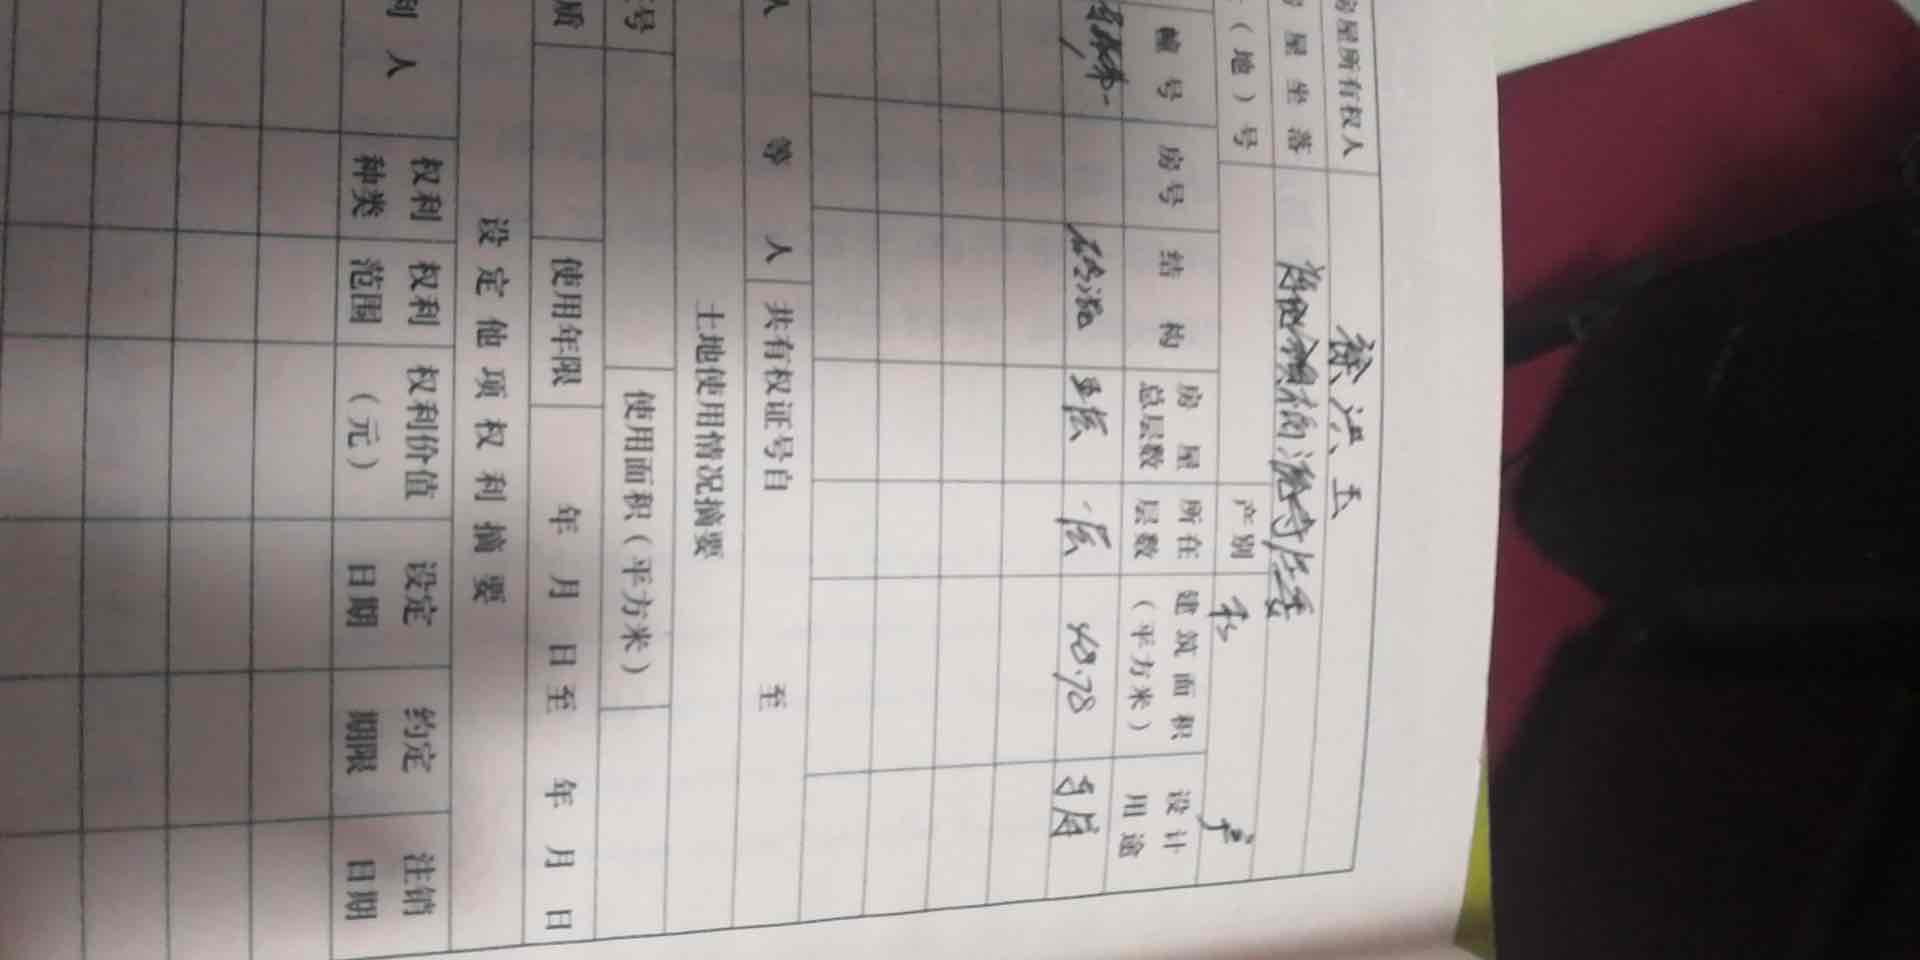 房屋所有权人 徐洪玉
屋坐落
（地）号 产别 私产
幢号 房号 结构 房屋总层数 所在层数 建筑面积（平方米） 设计用途
砖混 五层 一层 48.78 住房
人 等 人 共有权证号自 至
土地使用情况摘要
号 使用面积（平方米）
质 使用年限 年 月 日至 年 月 日
设定他项权利摘要
利人 权利种类 权利范围 权利价值（元） 设定日期 约定期限 注销日期